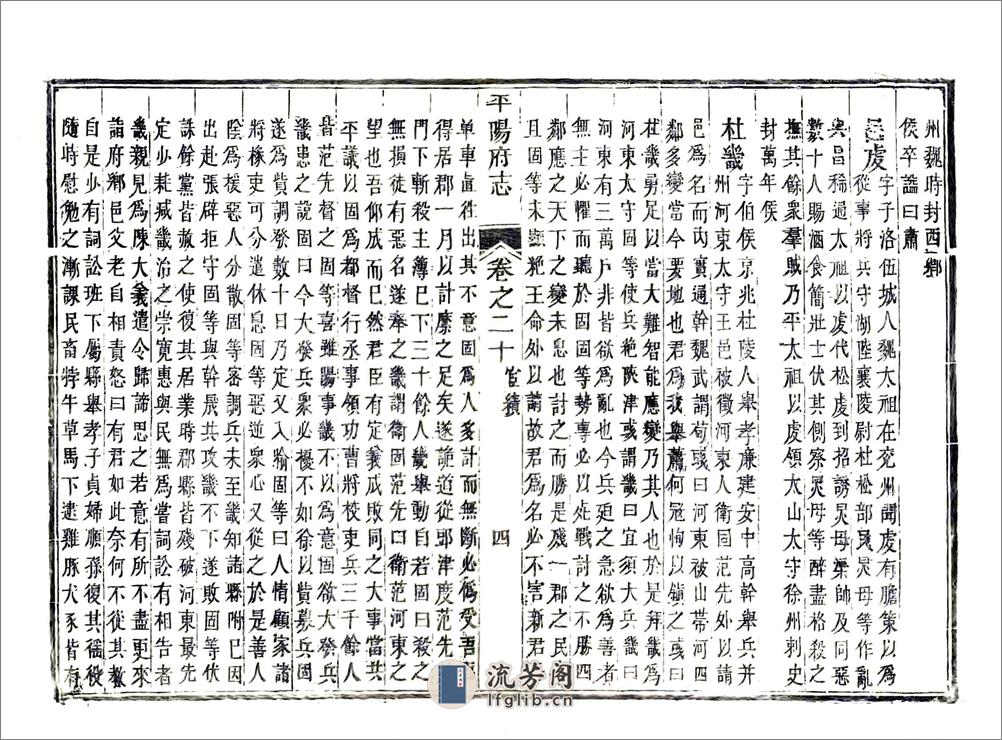 州魏時封西鄉
侯卒諡曰肅
呂虔字子洛伍城人魏太祖在兗州聞虔有膽策以爲
從事將兵守湖陸襄陵尉杜松部民炅母等作亂
與昌狶通太祖以虔代松虔到招誘炅母渠帥及同惡
數十人賜酒食簡壯士伏其側察炅母等醉盡格殺之
撫其餘衆羣賊乃平太祖以虔領太山太守徐州刺史
封萬年侯
杜畿字伯侯京兆杜陵人舉孝廉建安中高幹舉兵并
州河東太守王邑被徵河東人衛固范先外以請
邑爲名而內實通幹魏武謂荀彧曰河東被山帶河四
鄰多變當今要地也君爲我舉蕭何冠恂以鎮之彧曰
杜畿勇足以當大難智能應變乃其人也於是拜畿爲
河東太守固等使兵絶陝津彧謂畿曰宜須大兵畿曰
河東有三萬戶非皆欲爲亂也今兵廹之急欲爲善者
無主必懼而聽於固固等勢專必以死戰討之不勝四
鄰應之天下之變未息也討之而勝是殘一郡之民也
且固等未顯絶王命外以請故君爲名必不害新君吾
平陽府志
卷之二十 宦績
四
單車直往出其不意固爲人多計而無斷必僞受吾吾
得居郡一月以計縻之足矣遂詭道從郖津度范先
門下斬殺主簿巳下三十餘人畿舉動自若固曰殺之
無損徒有惡名遂奉之畿謂衛固范先曰衛范河東之
望也吾仰成而巳然君臣有定義成敗同之大事當共
平議以固爲都督行丞事領功曹將校吏兵三千餘人
皆范先督之固等喜雖陽事畿不以爲意固欲大發兵
畿患之說固曰今大發兵衆必擾不如徐以貲募兵固
遂爲貲調發數十日乃定又入喻固等曰人情顧家諸
將椽吏可分遣休息固等惡逆衆心又從之於是善人
陰爲援惡人分散固等密調兵未至畿知諸縣附巳因
出赴張辟拒守固等與幹晟共攻畿不下遂敗固等伏
誅餘黨皆赦之使復其居業時郡縣皆殘破河東最先
定少耗減畿治之崇寬惠與民無爲嘗詞訟有相告者
畿親見爲陳大義遣令歸諦思之若意有所不盡更來
詣府鄉邑父老自相責怒曰有君如此奈何不從其教
自是少有詞訟班下屬縣舉孝子貞婦順孫復其徭役
隨時慰勉之漸課民畜牸牛草馬下逮雞豚犬豕皆有
流芳阁
lfglib.com